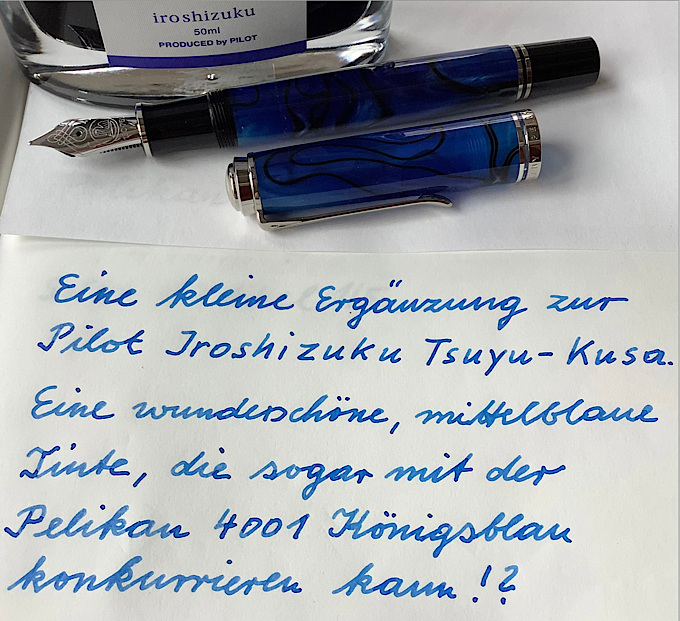 iroshizuku
50ml
PRODUCED by PILOT
Eine kleine Ergänzung zur
Pilot Iroshizuku Tsuyu-Kusa.
Eine wunderschöne, mittelblaue
Tinte, die sogar mit der
Pelikan 4001 Königsblau
konkurrieren kann!?